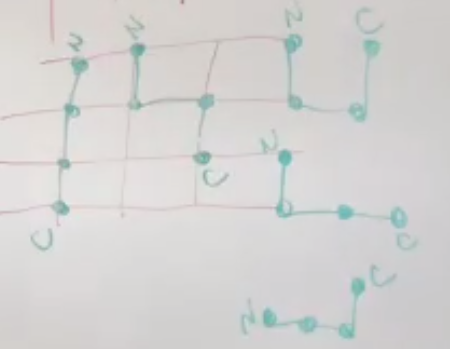 N N N C
C N
C
C
N C